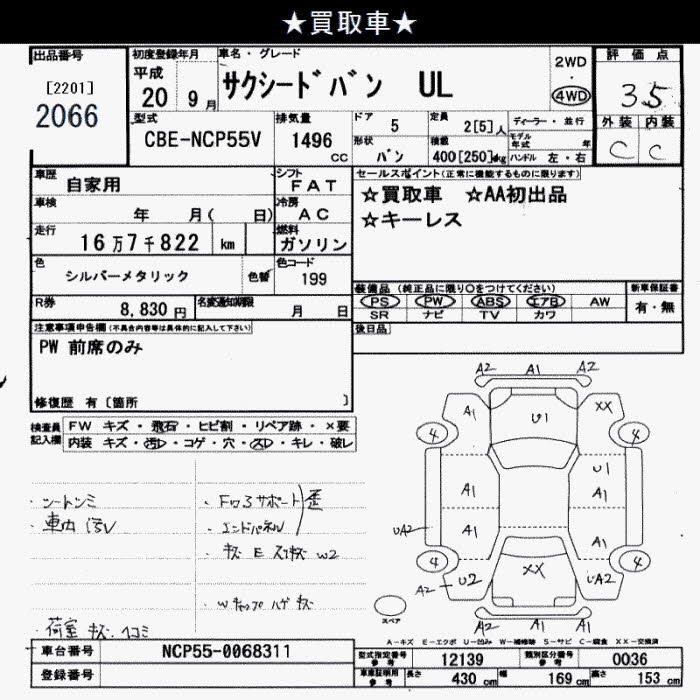 ★買取車★
出品番号
[2201]
2066
初度登録年月
平成
20 9 月
車名・グレード
サクシードバン UL
2WD
・
4WD
評価点
3.5
外装 内装
C C
型式
CBE-NCP55V
排気量
1496
CC
ドア 5
形状 バン
定員 2[5]人
積載 400[250]kg
ディーラー・並行
モデル年式 年
ハンドル 左・右
車歴
自家用
シフト
FAT
車検
年 月( 日)
冷房
AC
走行
16万7千822 km
燃料
ガソリン
色
シルバーメタリック
色替
色コード
199
R券
8,830円
名変通知期限
月 日
セールスポイント(正常に機能するものに限ります)
☆買取車 ☆AA初出品
☆キーレス
装備品(純正品に限り○をつけてください)
PS PW ABS エアB AW
SR ナビ TV カワ
新車保証書
有・無
後日品
注意事項申告欄(不具合内容等は具体的に記入して下さい)
PW 前席のみ
修復歴 有〔箇所 〕
検査員記入欄
FW キズ・飛石・ヒビ割・リペア跡・×要
内装 キズ・汚レ・コゲ・穴・スレ・キレ・破レ
・シートシミ
・車内 汚レ
・荷室 キズ ヘコミ
・Fロアサポート 歪
・エンドパネル
・キズ E スリキズ W2
・Wキャップ ハゲ キズ
A2 A1 A2
A1 XX
U1
4 4
U1
A1 A1
UA2 A1 A1
4 4
A2 U2 XX UA2
A2 A1 A2
スペア
A-キズ E-エクボ U-凹み W-補修跡 S-サビ C-腐食 XX-交換済
車台番号
NCP55-0068311
登録番号
型式指定番号 参考
12139
類別区分番号 参考
0036
車庫証明用 参考
長さ 430 cm
幅 169 cm
高さ 153 cm